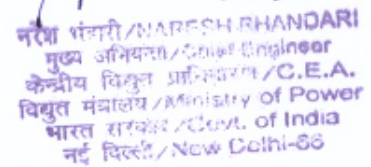 नरेश भंडारी/NARESH BHANDARI
मुख्य अभियन्ता/Chief Engineer
केन्द्रीय विद्युत प्राधिकरण/C.E.A.
विद्युत मंत्रालय/Ministry of Power
भारत सरकार/Govt. of India
नई दिल्ली/New Delhi-66